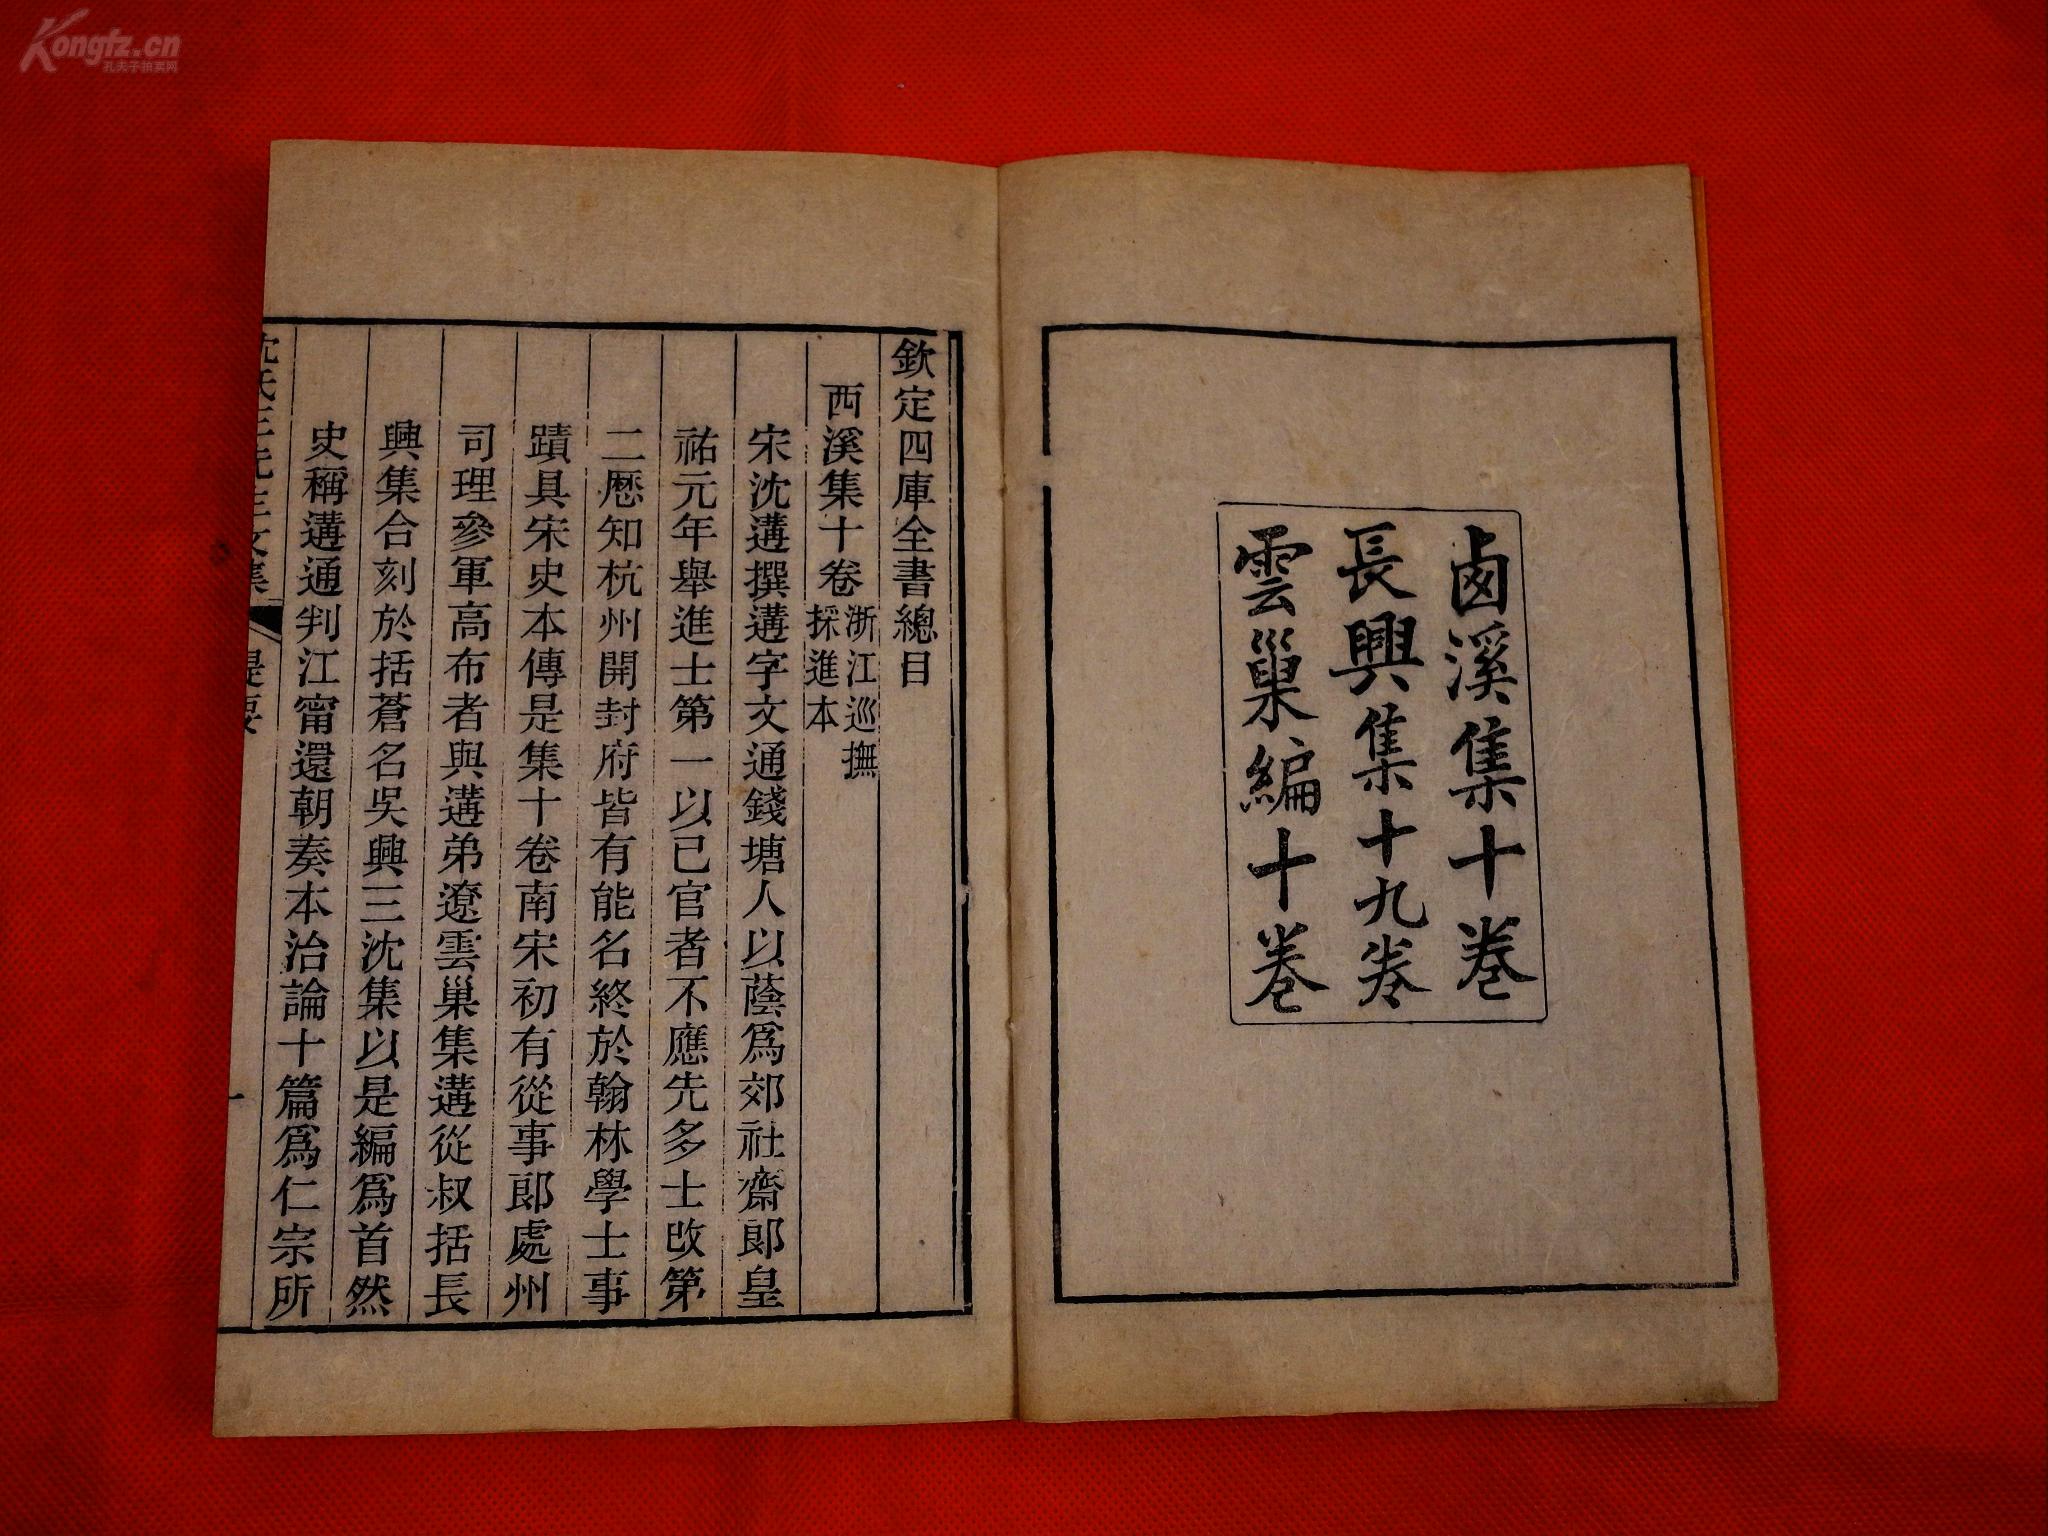 Kongfz.cn
孔夫子拍卖网
卥溪集十卷
長興集十九卷
雲巢編十卷
欽定四庫全書總目
西溪集十卷浙江巡撫
採進本
宋沈遘撰遘字文通錢塘人以蔭爲郊社齋郞皇
祐元年舉進士第一以已官者不應先多士改第
二厯知杭州開封府皆有能名終於翰林學士事
蹟具宋史本傳是集十卷南宋初有從事郞處州
司理參軍高布者與遘弟遼雲巢集遘從叔括長
興集合刻於括蒼名吳興三沈集以是編爲首然
史稱遘通判江甯還朝奏本治論十篇爲仁宗所
沈氏三先生文集 提要 一